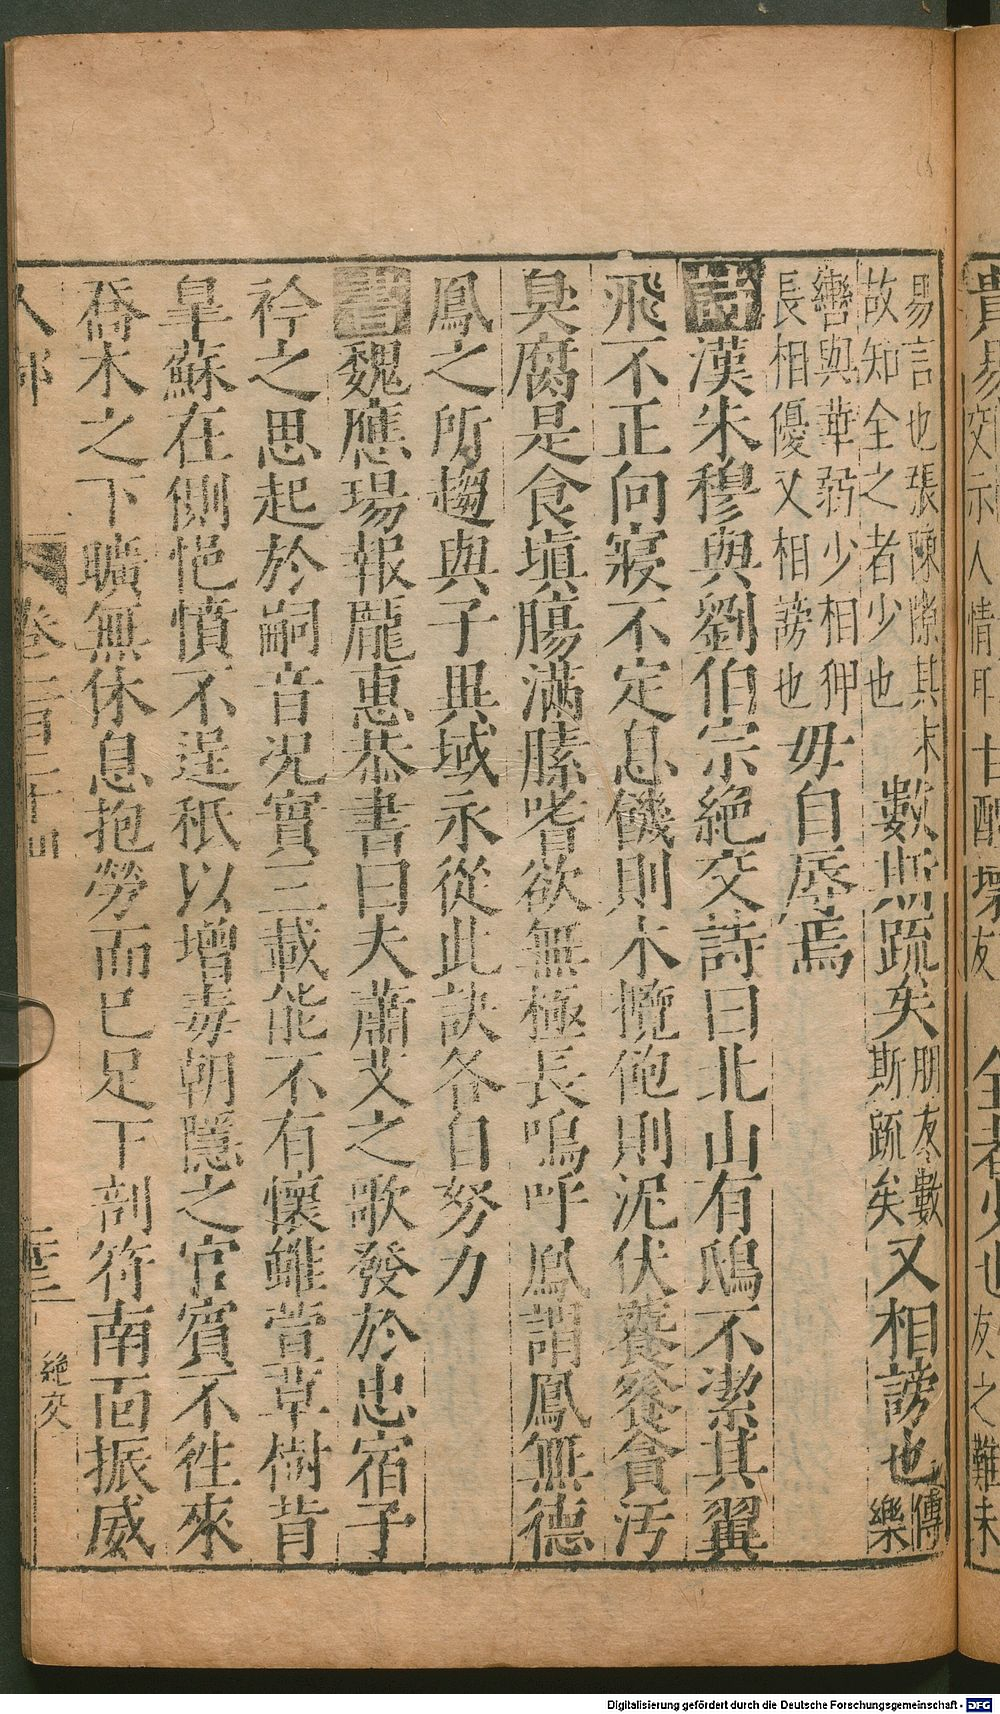 易言也張陳隙其末
故知全之者少也
數斯疏矣
朋友數
斯疏矣
又相謗也
傳
樂
轡與華弱少相狎
長相優又相謗也
毋自辱焉
詩漢朱穆與劉伯宗絕交詩曰北山有鴟不潔其翼
飛不正向寢不定息饑則木攬飽則泥伏饕餮貪汚
臭腐是食塡腸滿膆嗜欲無極長嗚呼鳳謂鳳無德
鳳之所趨與子異域永從此訣各自努力
書魏應瑒報龎惠恭書曰夫蕭艾之歌發於忠宿子
衿之思起於嗣音況實三載能不有懷雖萱草樹背
臯蘇在側悒憤不逞秪以增毒朝隱之官賓不徃來
喬木之下曠無休息抱勞而已足下剖符南面振威
人部
卷二百三十四
二十三
絶交
Digitalisierung gefördert durch die Deutsche Forschungsgemeinschaft - DFG